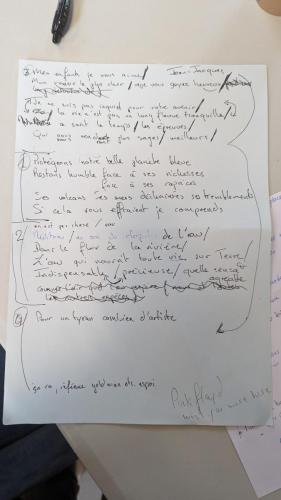 ③ Mes enfants je vous aime / Jean-Jacques
Mon cœur le plus cher / que vous soyez heureux /
Je ne suis pas inquiet pour votre avenir /
la vie n'est pas un long fleuve tranquille /
ce sont le temps / les épreuves /
Qui vous rendront plus sages / meilleurs /
① Protégeons notre belle planète bleue
Restons humble face à ses richesses
face à ses rapaces
Ses volcans ses mers déchaînées ses tremblements
Si cela vous effraient je comprends
2 Méditons / au son de l'eau /
Dans le flow de la rivière /
L'eau qui nourrit toute vie sur Terre
Indispensable / précieuse / quelle sensa°
agréable
④ Pour un tyran combien d'artiste
ça va, refrain goldman etc. espoi
Pink Floyd
wish you were here